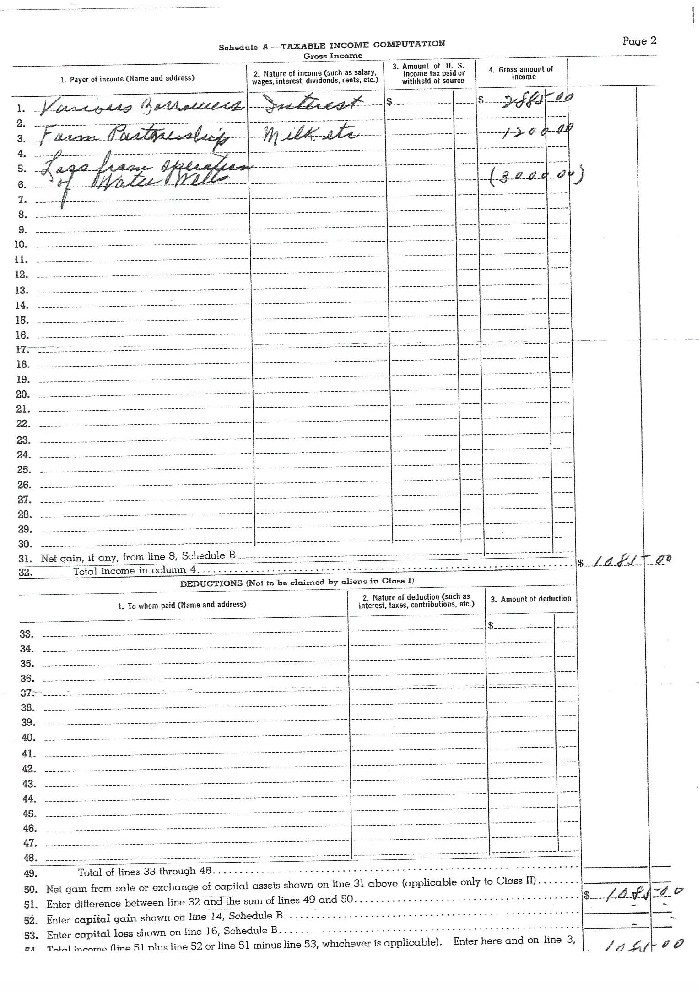 Schedule A — TAXABLE INCOME COMPUTATION
Page 2
Gross Income
1. Payer of income (Name and address)
2. Nature of income (such as salary, wages, interest dividends, rents, etc.)
3. Amount of U. S. Income tax paid or withheld at source
4. Gross amount of income
1. Various Borrowers Interest $ $ 2885 00
2.
3. Farm Partnership Milk etc 1200 00
4.
5. Loss from operation
6. of Water Wells (3000 00)
7.
8.
9.
10.
11.
12.
13.
14.
15.
16.
17.
18.
19.
20.
21.
22.
23.
24.
25.
26.
27.
28.
29.
30.
31. Net gain, if any, from line 8, Schedule B
32. Total income in column 4 $ 1085 00
DEDUCTIONS (Not to be claimed by aliens in Class I)
1. To whom paid (Name and address)
2. Nature of deduction (such as interest, taxes, contributions, etc.)
3. Amount of deduction
33. $
34.
35.
36.
37.
38.
39.
40.
41.
42.
43.
44.
45.
46.
47.
48.
49. Total of lines 33 through 48
50. Net gain from sale or exchange of capital assets shown on line 31 above (applicable only to Class II)
51. Enter difference between line 32 and the sum of lines 49 and 50 $ 1085 00
52. Enter capital gain shown on line 14, Schedule B
53. Enter capital loss shown on line 16, Schedule B
54. Total income (line 51 plus line 52 or line 51 minus line 53, whichever is applicable). Enter here and on line 3, 1085 00